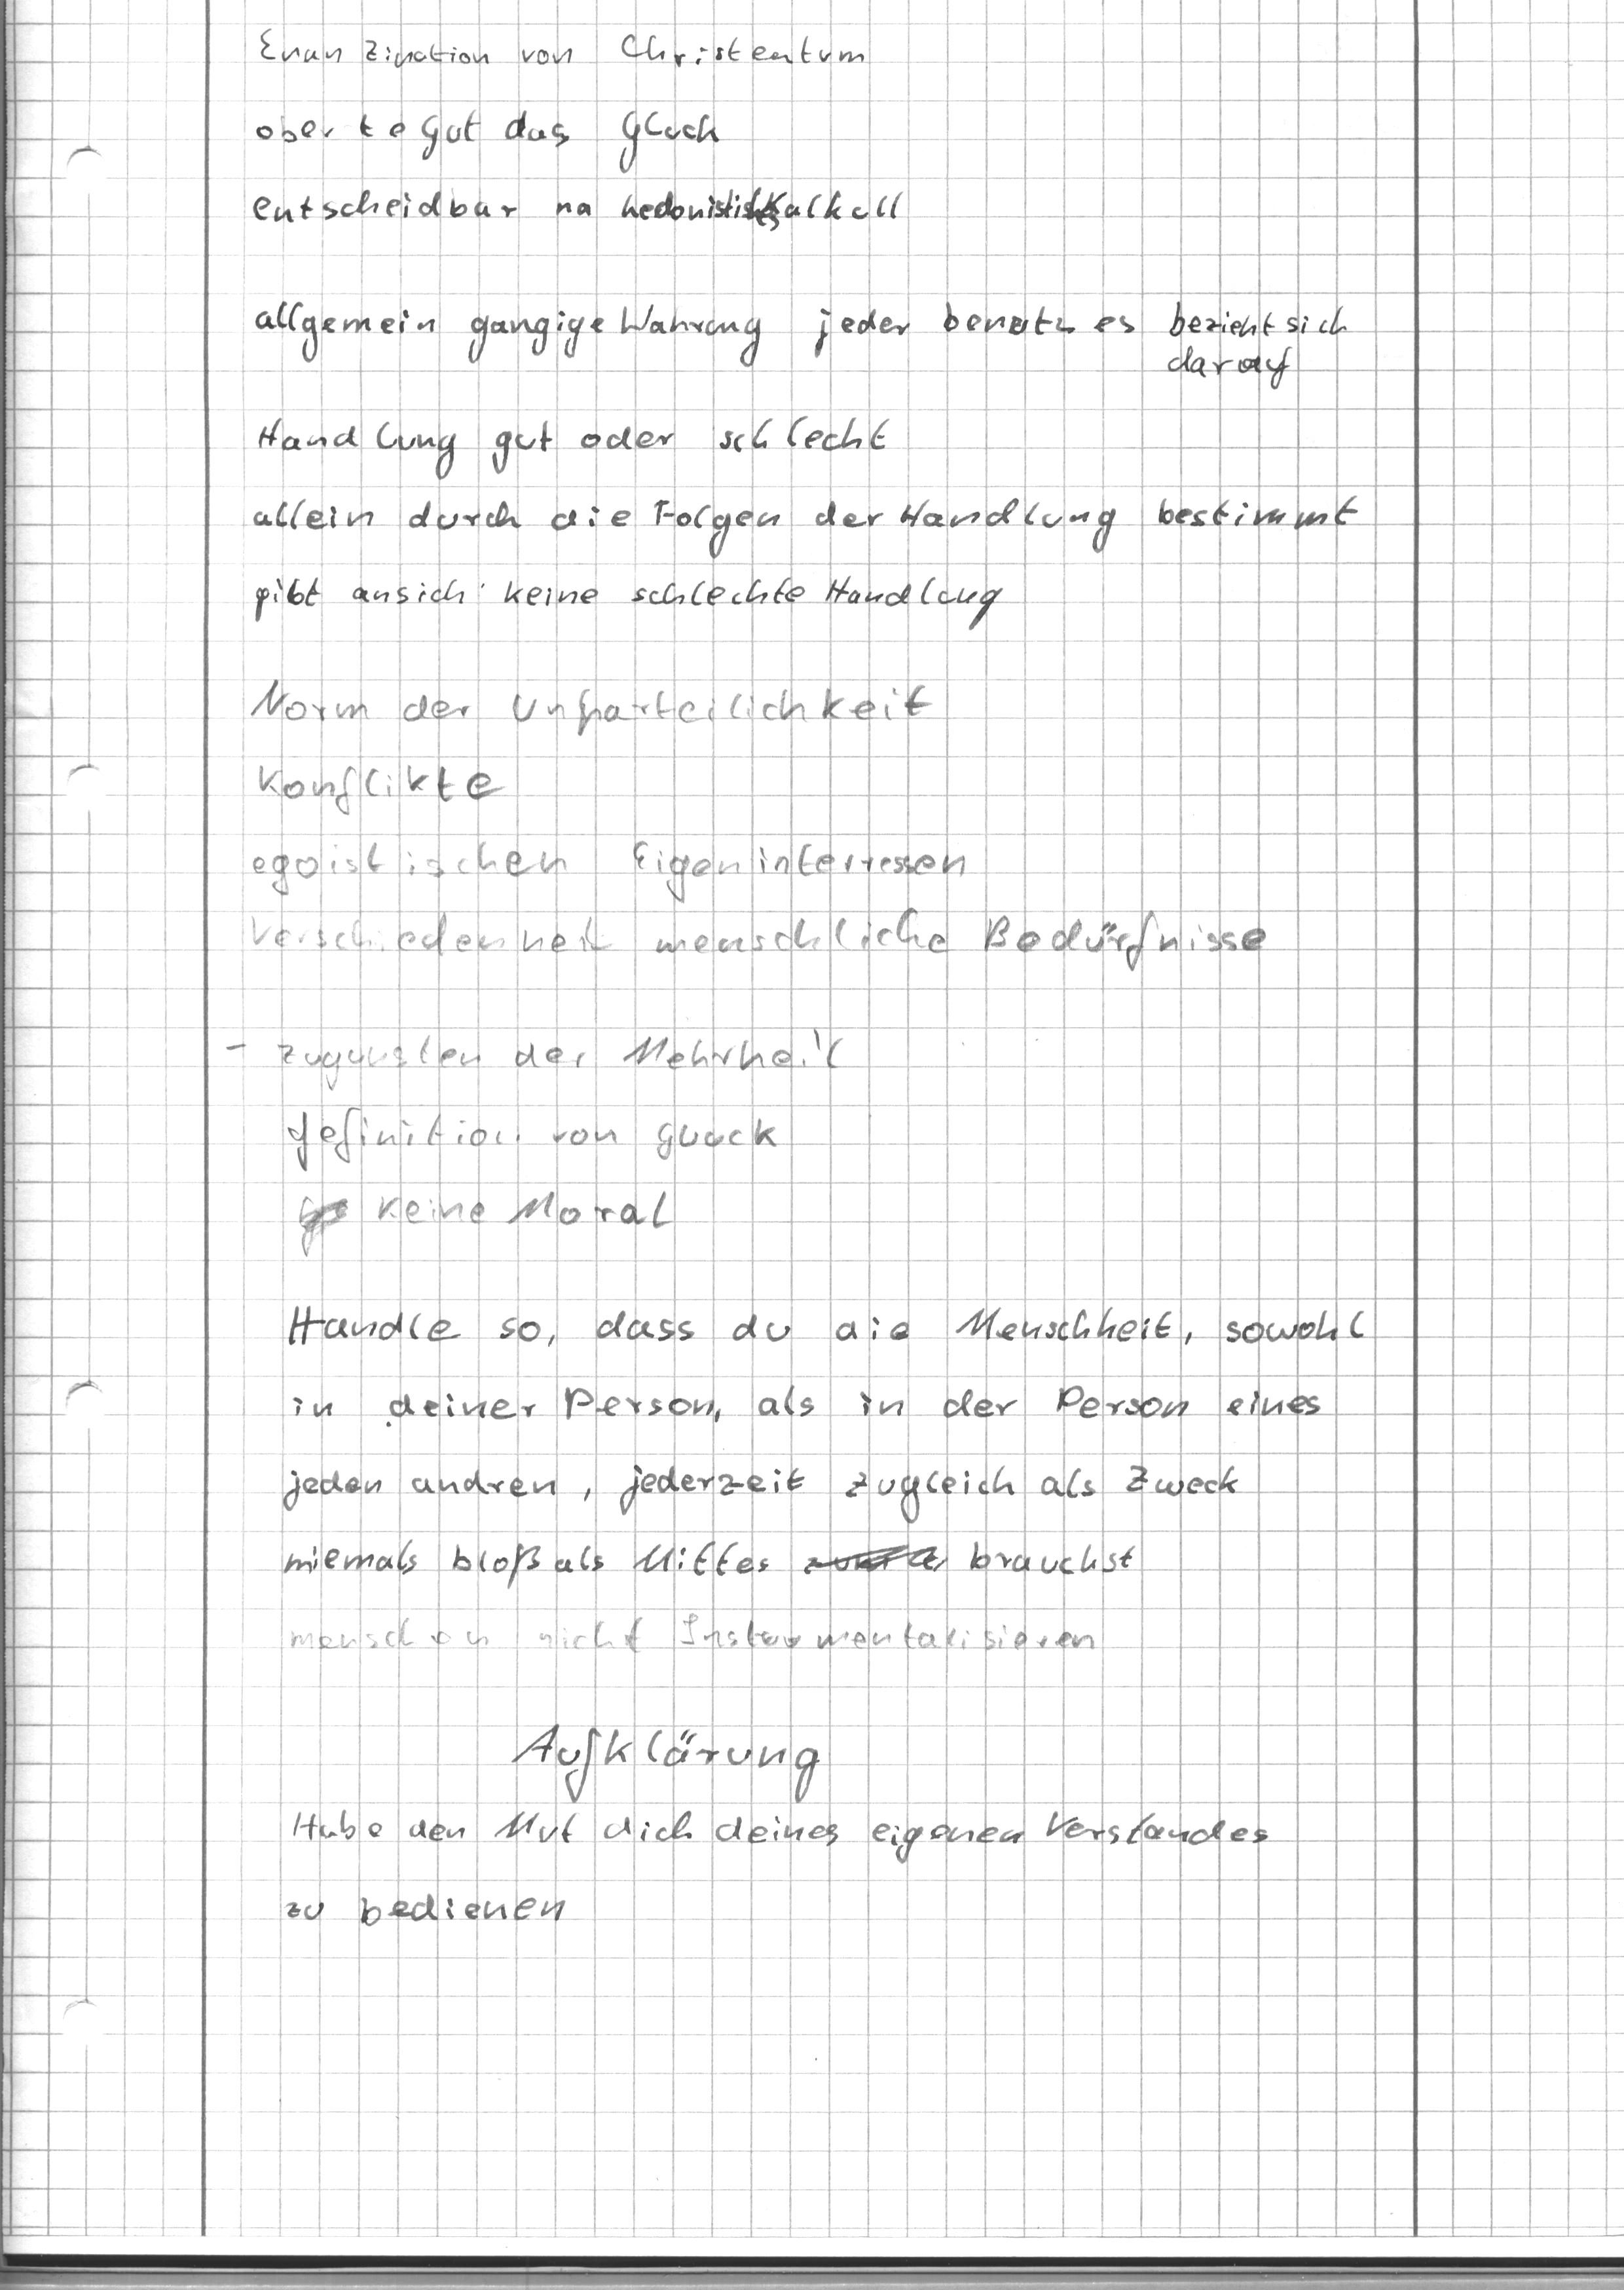 Emanzipation von Christentum
oberte Gut das Gluck
entscheidbar na hedonistisches Kalkull
allgemein gangige Wahrung jeder benutz es bezieht sich
darauf
Handlung gut oder schlecht
allein durch die Folgen der Handlung bestimmt
gibt ansich keine schlechte Handlung
Norm der Unparteilichkeit
Konflikte
egoistischen Eigeninterressen
Verschiedenheit menschliche Bedürfnisse
- zugunsten der Mehrheit
definition von Gluck
keine Moral
Handle so, dass du die Menschheit, sowohl
in deiner Person, als in der Person eines
jeden andren, jederzeit zugleich als Zweck
niemals bloß als Mittes brauchst
menschen nicht Instrumentalisieren
Aufklärung
Habe den Mut dich deines eigenen Verstandes
zu bedienen